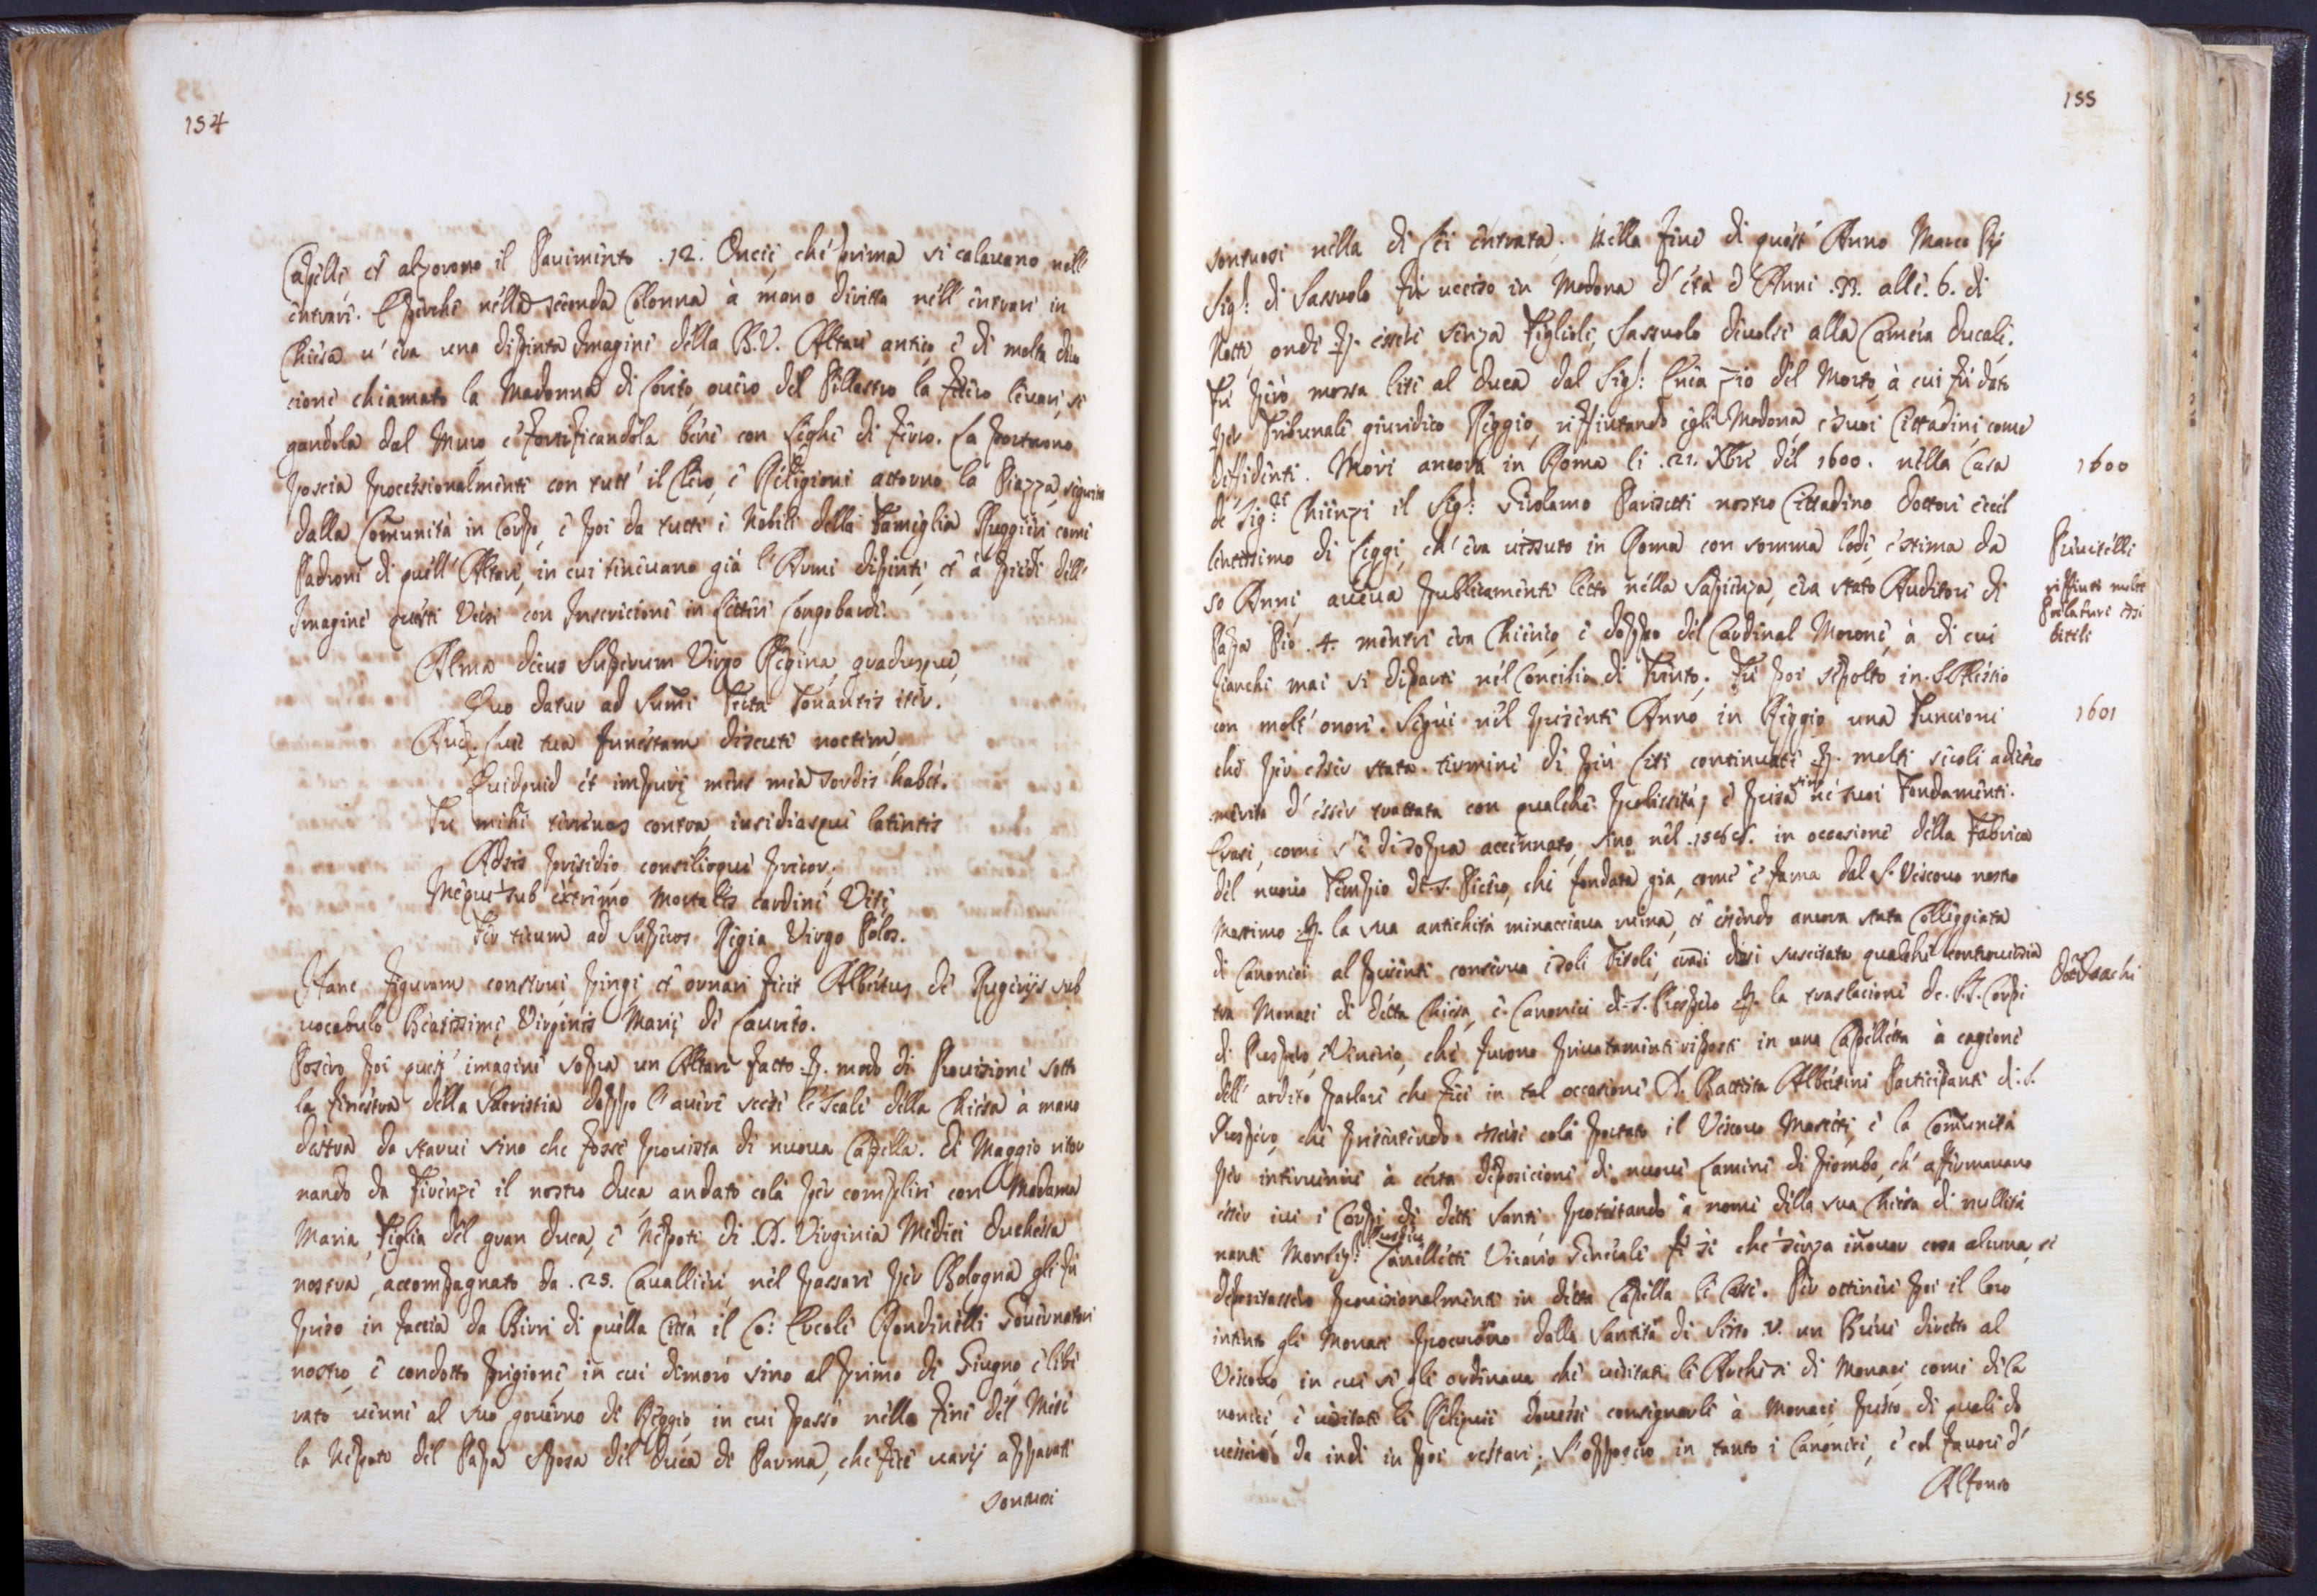 154
Capelle, et alzorono il Pavimento .12. Oncie, che prima si calavano nell'
entrare. E perche nella seconda Colonna à mano diritta nell'entrare in
Chiesa v'era una dipinta Imagine della B.V. Altare antico, e di molta divo
cione chiamato la Madonna di Loreto, overo del Pillastro la fecero levare, se
gandola dal Muro, e fortificandola bene con Lighe di ferro. La portorono
poscia processionalmente con tutt'il Clero, e Religioni attorno la Piazza, seguita
dalla Comunità in Corpo, e poi da tutti i Nobili della Famiglia Ruggieri come
Padroni di quell'Altare, in cui tenevano già l'Armi dipinte, et à piedi dell'
Imagine questi Versi con Inscricione in Lettere Longobarde.
Alma decus Superum Virgo Regina, gradusque,
Quo datur ad Sumi Tecta Tonantis iter.
Luce tua funestam discute noctem,
Quidquid et impurę mens mea sordis habet.
Tu mihi terrenas contra, insidiasque latentis
Adsis pręsidio, consilioque precor;
Meque sub extremo mortalis cardine Vitę
Fer tecum ad Superos Regia Virgo Polos.
Hanc figuram construi, pingi, et ornari fecit Albertus de Rugerijs sub
vocabulo Beatissimę Virginis Marię de Laureto.
Posero poi quest'imagine sopra un Altare fatto p. modo di Provisione sotto
la finestra della Sacristia doppo l'avere scese le Scale della Chiesa à mano
destra da starvi sino che fosse provista di nuova Capella. Di Maggio ritor
nando da Firenze il nostro Duca andato colà per complire con Madama
Maria, Figlia del gran Duca, e Nepote di D. Virginia Medici Duchessa
nostra, accompagnato da .25. Cavallieri, nel passare per Bologna gli fù
preso in faccia da Birri di quella Città il Co: Ercole Rondinelli Governatore
nostro, e condotto prigione, in cui dimorò sino al primo di Giugno, e libe
rato venne al suo governo di Reggio, in cui passò nella fine del Mese
la Nepote del Papa Sposa del Duca di Parma, che fece varij apparati
sontuosi
155
sontuosi nella di lei entrata. Nella fine di quest'Anno Marco Pij
Sig.r di Sassuolo fù ucciso in Modona d'età d'Anni .33. alle .6. di
Notte, onde p. essere senza figlioli, Sassuolo divolse alla Camera Ducale.
Fù però mossa lite al Duca dal Sig.r Enea zio del Morto, à cui fù dato
per Tribunale giuridico Reggio, riffiutando egli Modona, e suoi Cittadini, come
diffidenti. Morì ancora in Roma li .21. Xbre del 1600. nella Casa
de Sig.ri Chienzi il Sig.r Girolamo Parisetti nostro Cittadino Dottore eccel
lentissimo di Leggi, ch'era vissuto in Roma con somma lode, e stima da
50 Anni, aveva publicamente letto nella Sapienza, era stato Auditore di
Papa Pio .4. mentre era Chierico, e doppo del Cardinal Morone, à di cui
fianchi mai si diparti nel Concilio di Trento. Fù poi sepolto in S. Alessio
con molt'onore. Seguì nel presente Anno in Reggio una Funcione
che per esser stata termine di più Liti continuate p. molti secoli adietro
merita d'esser trattata con qualche prolissità; e presa sino ne suoi Fondamenti.
Erasi, come s'è di sopra accennato, sino nel .1586. in occasione della Fabrica
del nuovo Tempio di S. Pietro, che fondata gia, come è fama dal S. Vescovo nostro
Massimo p. la sua antichità minacciava ruina, et essendo ancora stata Colleggiata
di Canonici al presente conserva i soli Titoli, erasi dissi suscitata qualche controversia
tra Monaci di detta Chiesa, e Canonici di S. Prospero p. la traslacione de S.S. Corpi
di Prospero, e Venerio, che furono privatamente riposti in una Capelletta à cagione
dell'ardito parlare che fece in tal occasione D. Battista Albertini Participante di S.
Prospero, che presentendo essersi colà portato il Vescovo Martelli, e la Comunità
per intervenire à certa deposicione di nuove Lamine di piombo, ch'affirmavano
esser ivi i Corpi di detti Santi, protestando à nome della sua Chiesa di nullità
nanti Monsig.r Canelletti Vicario Generale fè si che senza inovar cosa alcuna, si
depositassero provisionalmente in detta Capella le Casse. Per ottenere poi il loro
intento gli Monaci procurorno dalla Santità di Sisto .V. un Breve diretto al
Vescovo, in cui si gli ordinava, che visitate le Archi si di Monaci, come di Ca
nonici, e visitate le Reliquie dovessi consignarle à Monaci, presso di quali do
vessero da indi in poi restare; S'opposero in tanto i Canonici, e col favore d'
Alfonso
1600
riffiutò molte
Prelature esi
bitele
1601